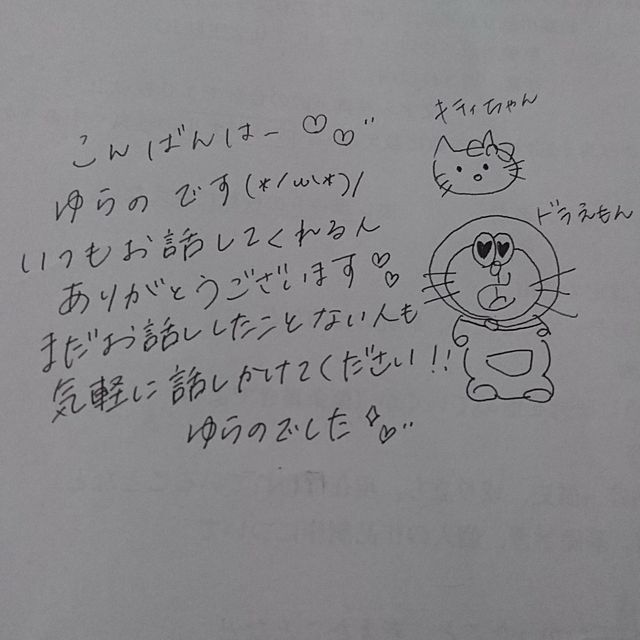 こんばんはー♡♡"
ゆらのです(*/ω\*)/
いつもお話してくれる人
ありがとうございます♡♡
まだお話ししたことない人も
気軽に話しかけてください!!
ゆらのでした♡♡"
キティちゃん
ドラえもん